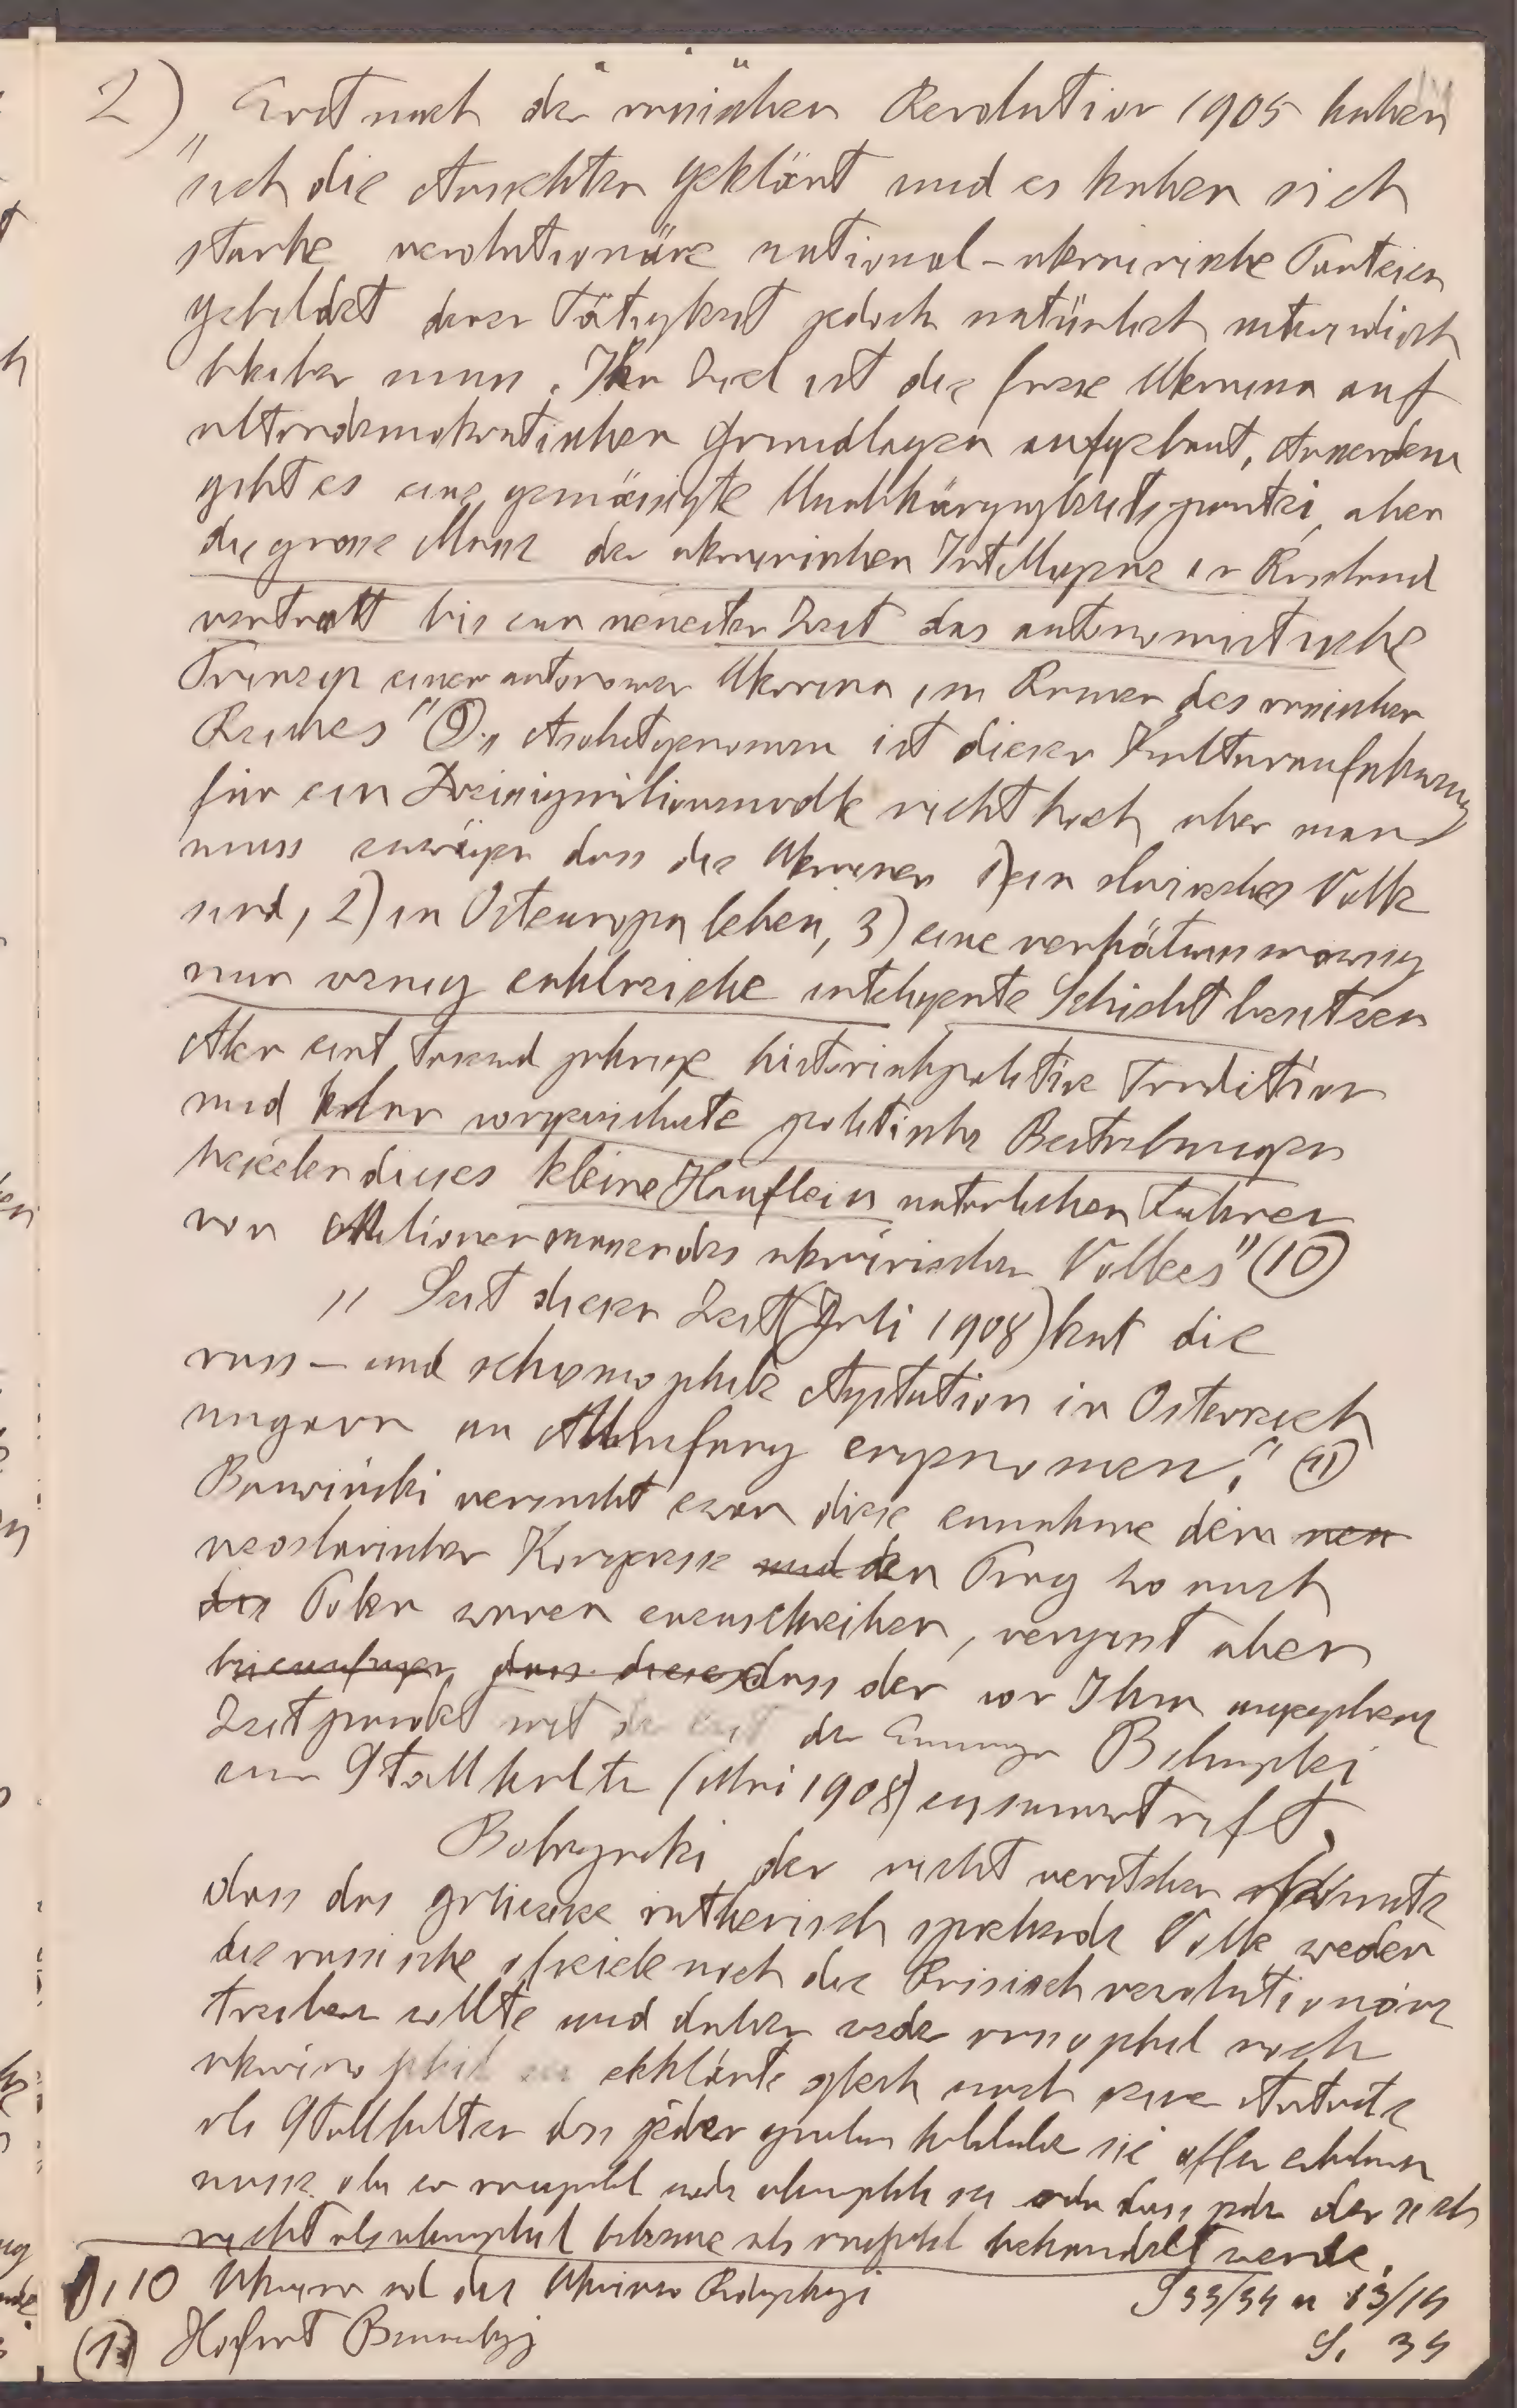 2) „Erst nach der russischen Revolution 1905 haben
sich die Ansichten geklärt und es haben sich
starke revolutionäre national-ukrainische Parteien
gebildet deren Tätigkeit jedoch natürlich unterirdisch
bleiben muss. Ihr Ziel ist die freie Ukraina auf
ultrademokratischen Grundlagen aufgebaut, Ausserdem
gibt es eine gemässigte Unabhängigkeitspartei, aber
die grosse Masse der ukrainischen Intelligenz in Russland
vertratt bis zur neuesten Zeit das autonomistische
Prinzip einer autonomen Ukraina im Ramen des russischen
Reiches" (9). „ Absolutgenommen ist dieser Kulturaufschwung
für ein Dreissigmilionenvolk nicht hoch aber man
muss erwägen dass die Ukrainer 1) ein slavisches Volk
sind, 2) in Osteuropa leben, 3) eine verhätnismässig
nur wenig zahlreiche inteligente Schicht besitzen
Aber eine Tausend jahrige historischpolitische Tradition
und klar vorgezeichnete politische Bestrebungen
beseelen dieses kleine Hauflein naturlichen Fuhrer
von Milionenmassen des ukrainischen Volkes" (10)
„ Seit dieser Zeit (Juli 1908) hat die
russ- und schismophile Agitation in Österreich
ungarn an Umfang eingenomen." (11)
Barwiński versucht zwar diese zunahme dem neu
neoslavischen Kongresse und den Prag wo auch
die Polen waren zuzuschreiben, vergisst aber
dass der von Ihm angegebene
Zeitpunkt mit der Ernennung Bobrzynski
zum Stathalter (Mai 1908) zusammentrifft,
Bobrzynski der nicht verstehen konnte
dass das galizische ruthenisch sprechende Volk weder
die russische noch die revolutionäre
treiben wollte und daher weder russophil noch
ukrainophil erklärte gleich nach seinem Antritt
als Statthalter das jeder
muss ob er russophil oder ukrainophil sei oder dass jeder der sich
nicht als ukrainophil bekenne als russophil behandelt werde.
9, 10 Ukraina und die Ukrainer Rudnyckyj S 33/34 u 13/14
(11) Hofrat Barwinskyj S. 34